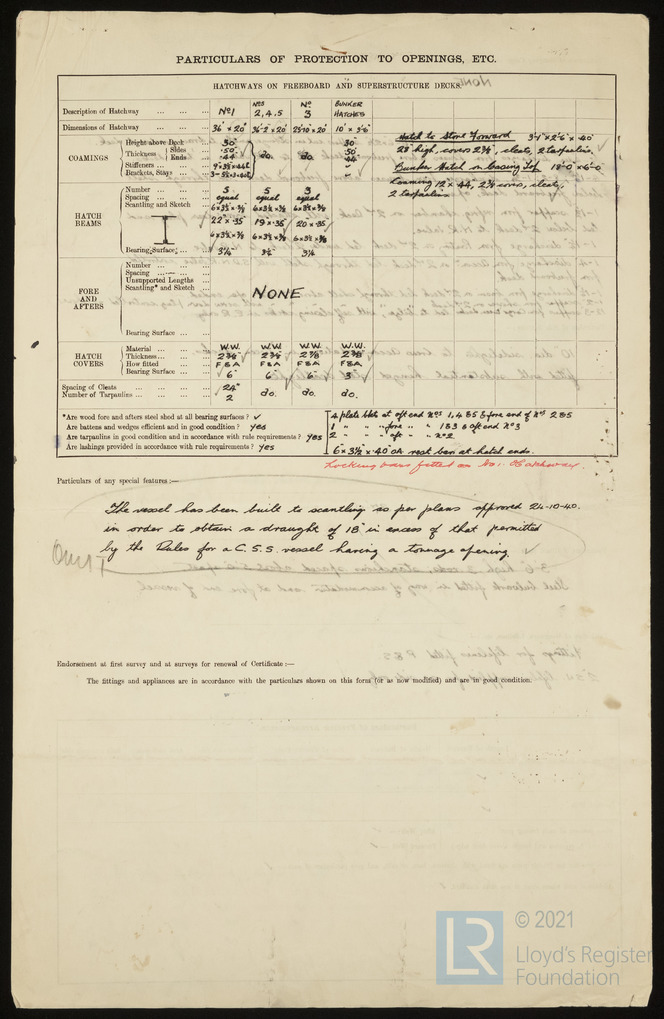 PARTICULARS OF PROTECTION TO OPENINGS, ETC.
HATCHWAYS ON FREEBOARD AND SUPERSTRUCTURE DECKS.
Description of Hatchway ... ... ... Nº1 NOS 2,4,5 Nº 3 BUNKER HATCHES
Dimensions of Hatchway ... ... ... 36' × 20' 36'-2" × 20' 10' ×
COAMINGS
Height above Deck ... 30" 30"
Thickness Sides ... .50" do. do. .50"
Ends ... .44 .44"
Stiffeners ... ... ...
Brackets, Stays ... ...
Hatch to Store Forward 3'-1" × 2'-6" × .40"
28" high, covers 2⅜", cleats, 2 tarpaulins.
Bunker Hatch in Casing Top 18'-0" × 6'-0"
Coaming 12" × .44, 2⅜" covers, cleats,
2 tarpaulins
HATCH BEAMS
Number ... ... ... 5 5 3
Spacing ... ... ... equal equal equal
Scantling and Sketch
22" × .35 19 × .35 20 × .35
Bearing Surface ... ... 3¼" 3½ 3¼
FORE AND AFTERS
Number ... ... ...
Spacing ... ... ...
Unsupported Lengths ...
Scantling* and Sketch
NONE
Bearing Surface ... ...
HATCH COVERS
Material ... ... ... W.W. W.W. W.W. W.W.
Thickness ... ... ... 2⅜" 2⅜" 2⅜" 2⅜"
How fitted ... ... F&A F&A F&A F&A
Bearing Surface ... ... 6" 6" 6" 3"
Spacing of Cleats ... ... ... 24"
Number of Tarpaulins ... ... ... 2 do. do. do.
*Are wood fore and afters steel shod at all bearing surfaces? ✓
Are battens and wedges efficient and in good condition? yes
Are tarpaulins in good condition and in accordance with rule requirements? yes
Are lashings provided in accordance with rule requirements? yes
4 plate bkts at aft end Nºs 1, 4 & 5 & fore end of Nºs 2 & 5
1 " " " fore " " " 1 & 3 & aft end Nº3
2 " " " aft " " Nº2
6" × 3½" × .40 OA rest bar at hatch ends.
Locking bars fitted on No.1 Hatchway.
Particulars of any special features:—
The vessel has been built to scantling as per plans approved 24-10-40.
in order to obtain a draught of 18" in excess of that permitted
by the Rules for a C.S.S. vessel having a tonnage opening. ✓
Omit
Endorsement at first survey and at surveys for renewal of Certificate:—
The fittings and appliances are in accordance with the particulars shown on this form (or as now modified) and are in good condition.
LR
© 2021
Lloyd's Register
Foundation